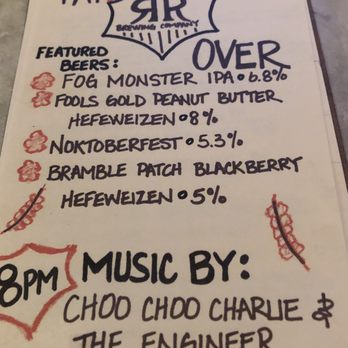 BREWING COMPANY
FEATURED
BEERS:
OVER
FOG MONSTER IPA • 6.8%
FOOLS GOLD PEANUT BUTTER
HEFEWEIZEN • 8%
NOKTOBERFEST • 5.3%
BRAMBLE PATCH BLACKBERRY
HEFEWEIZEN • 5%
8PM MUSIC BY:
CHOO CHOO CHARLIE &
THE ENGINEER